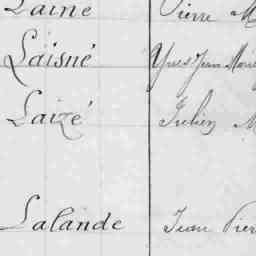 Lainé Pierre M
Laisné Yves Jean Marie
Laizé Julien M
Lalande Jean Pier